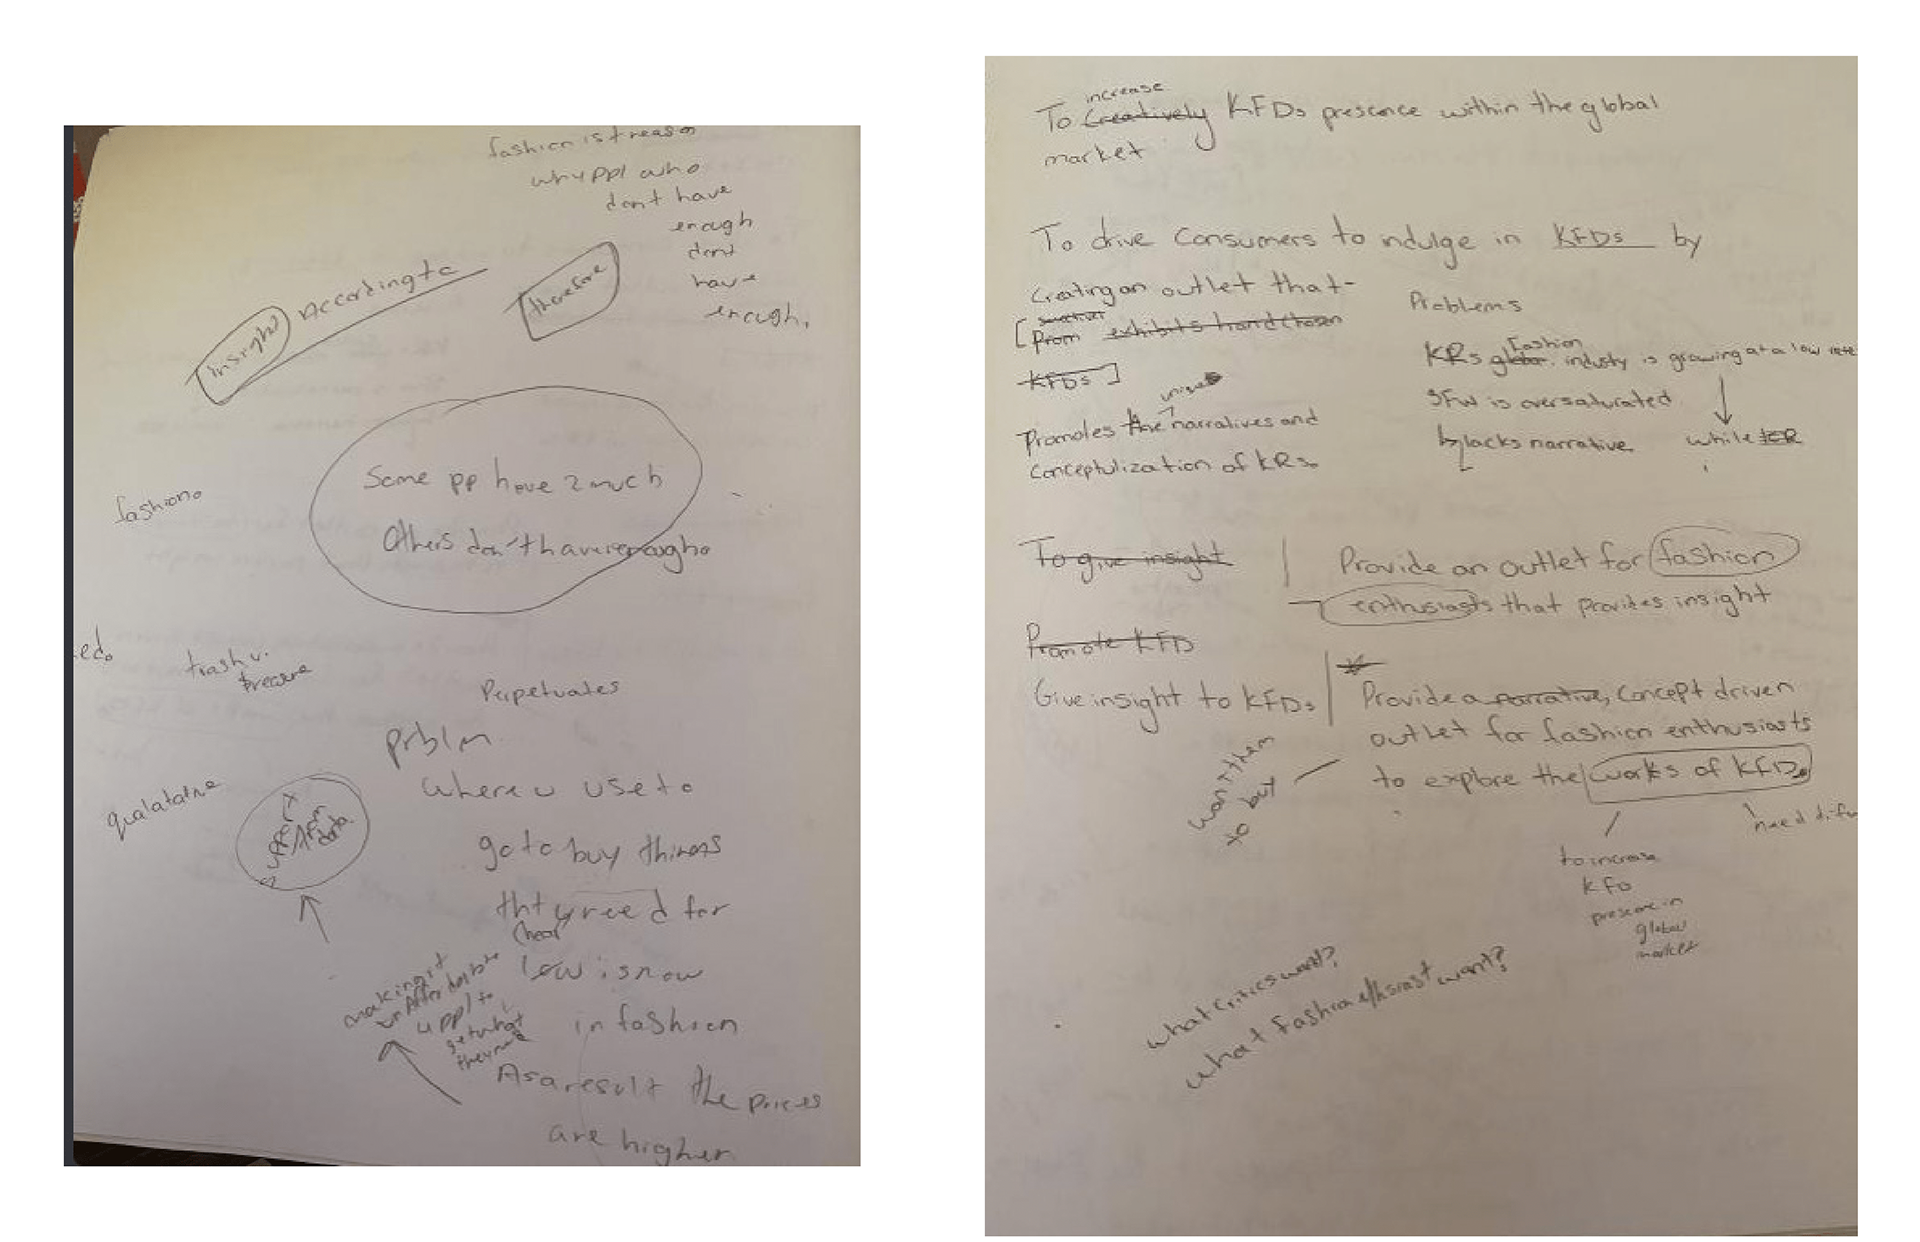 fashion is t reason
why ppl who
dont have
enough
dont
have
enough.
insight According to
therefore
Some pp have 2 much
Others don't have enough
fashion
trash v.
Perpetuates
prblm
where u use to
go to buy things
tht u need for
cheap
low is now
in fashion
As a result the prices
are higher
making it
un Affordable
4 ppl to
get what
they need
data.
increase
To Creatively KFDs presence within the global
market
To drive consumers to indulge in KFDs by
Creating an outlet that-
[from exhibits handchosen
KFDs]
unique
Promotes the narratives and
conceptulization of KRs.
Problems
Fashion
KRs industy is growing at a low rate
SFW is oversaturated
lacks narrative
while KR
To give insight
Provide an outlet for fashion
enthusiasts that provides insight
Promote KFD
Give insight to KFDs
Provide a narrative, concept driven
outlet for fashion enthusiasts
to explore the works of KFDs
want them
to buy
need
to increase
KFD
presence in
global
market
what critics want?
what fashion want?